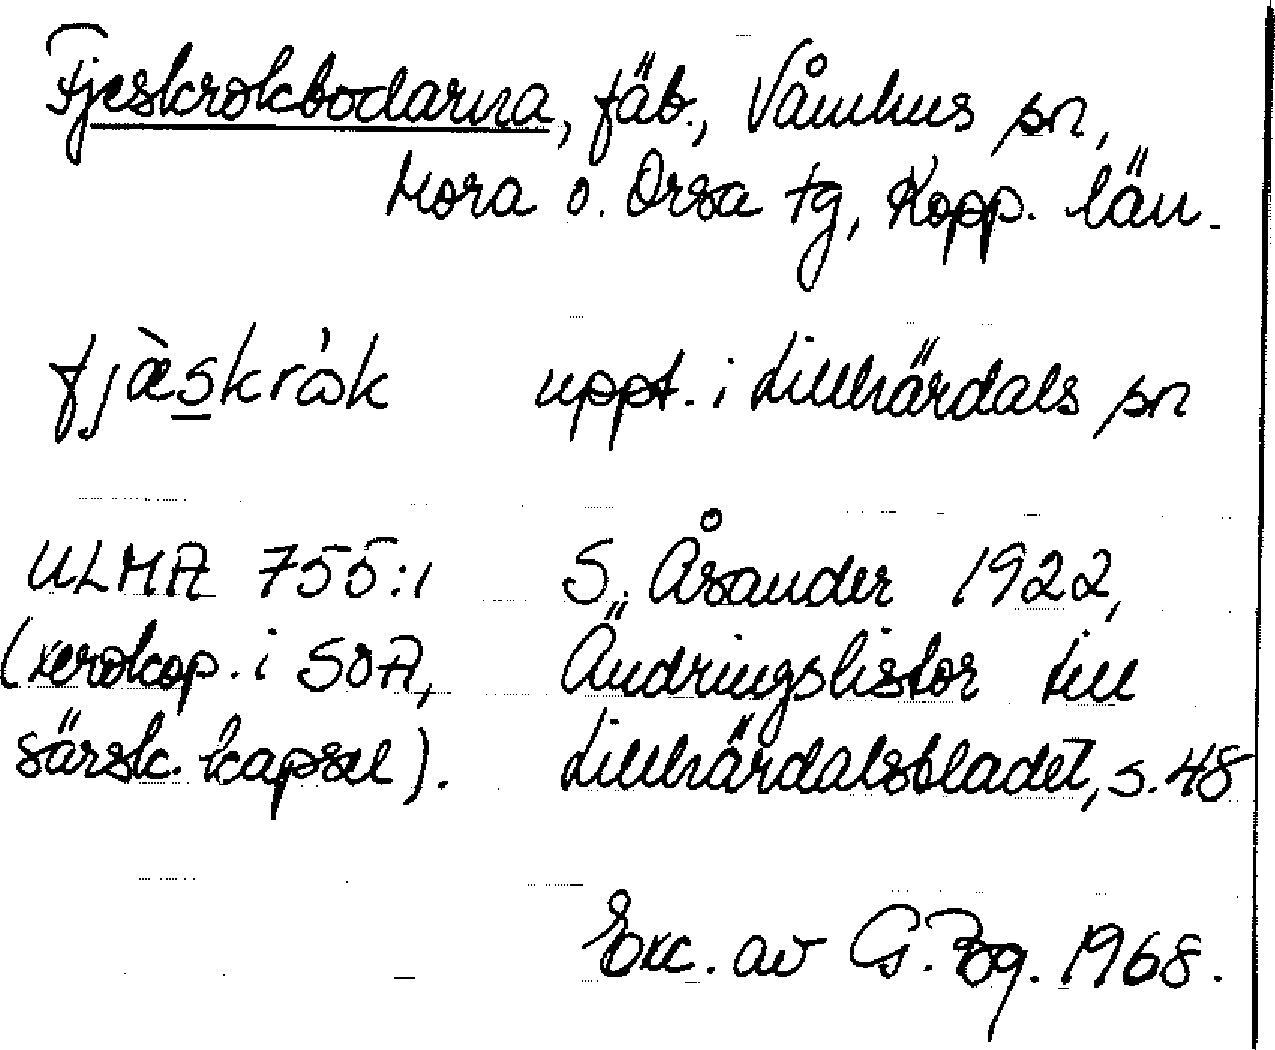 Fjeskrokbodarna, fäb., Våmhus sn,
Mora o. Orsa tg, Kopp. län.
fjæ̀skrå̀k uppt. i Lillhärdals sn
ULMA 755:1 S. Åsander 1922,
(xerokop. i SOA, Ändringslistor till
särsk. kapsel). Lillhärdalsbladet, s. 48
Exc. av G. Bg. 1968.